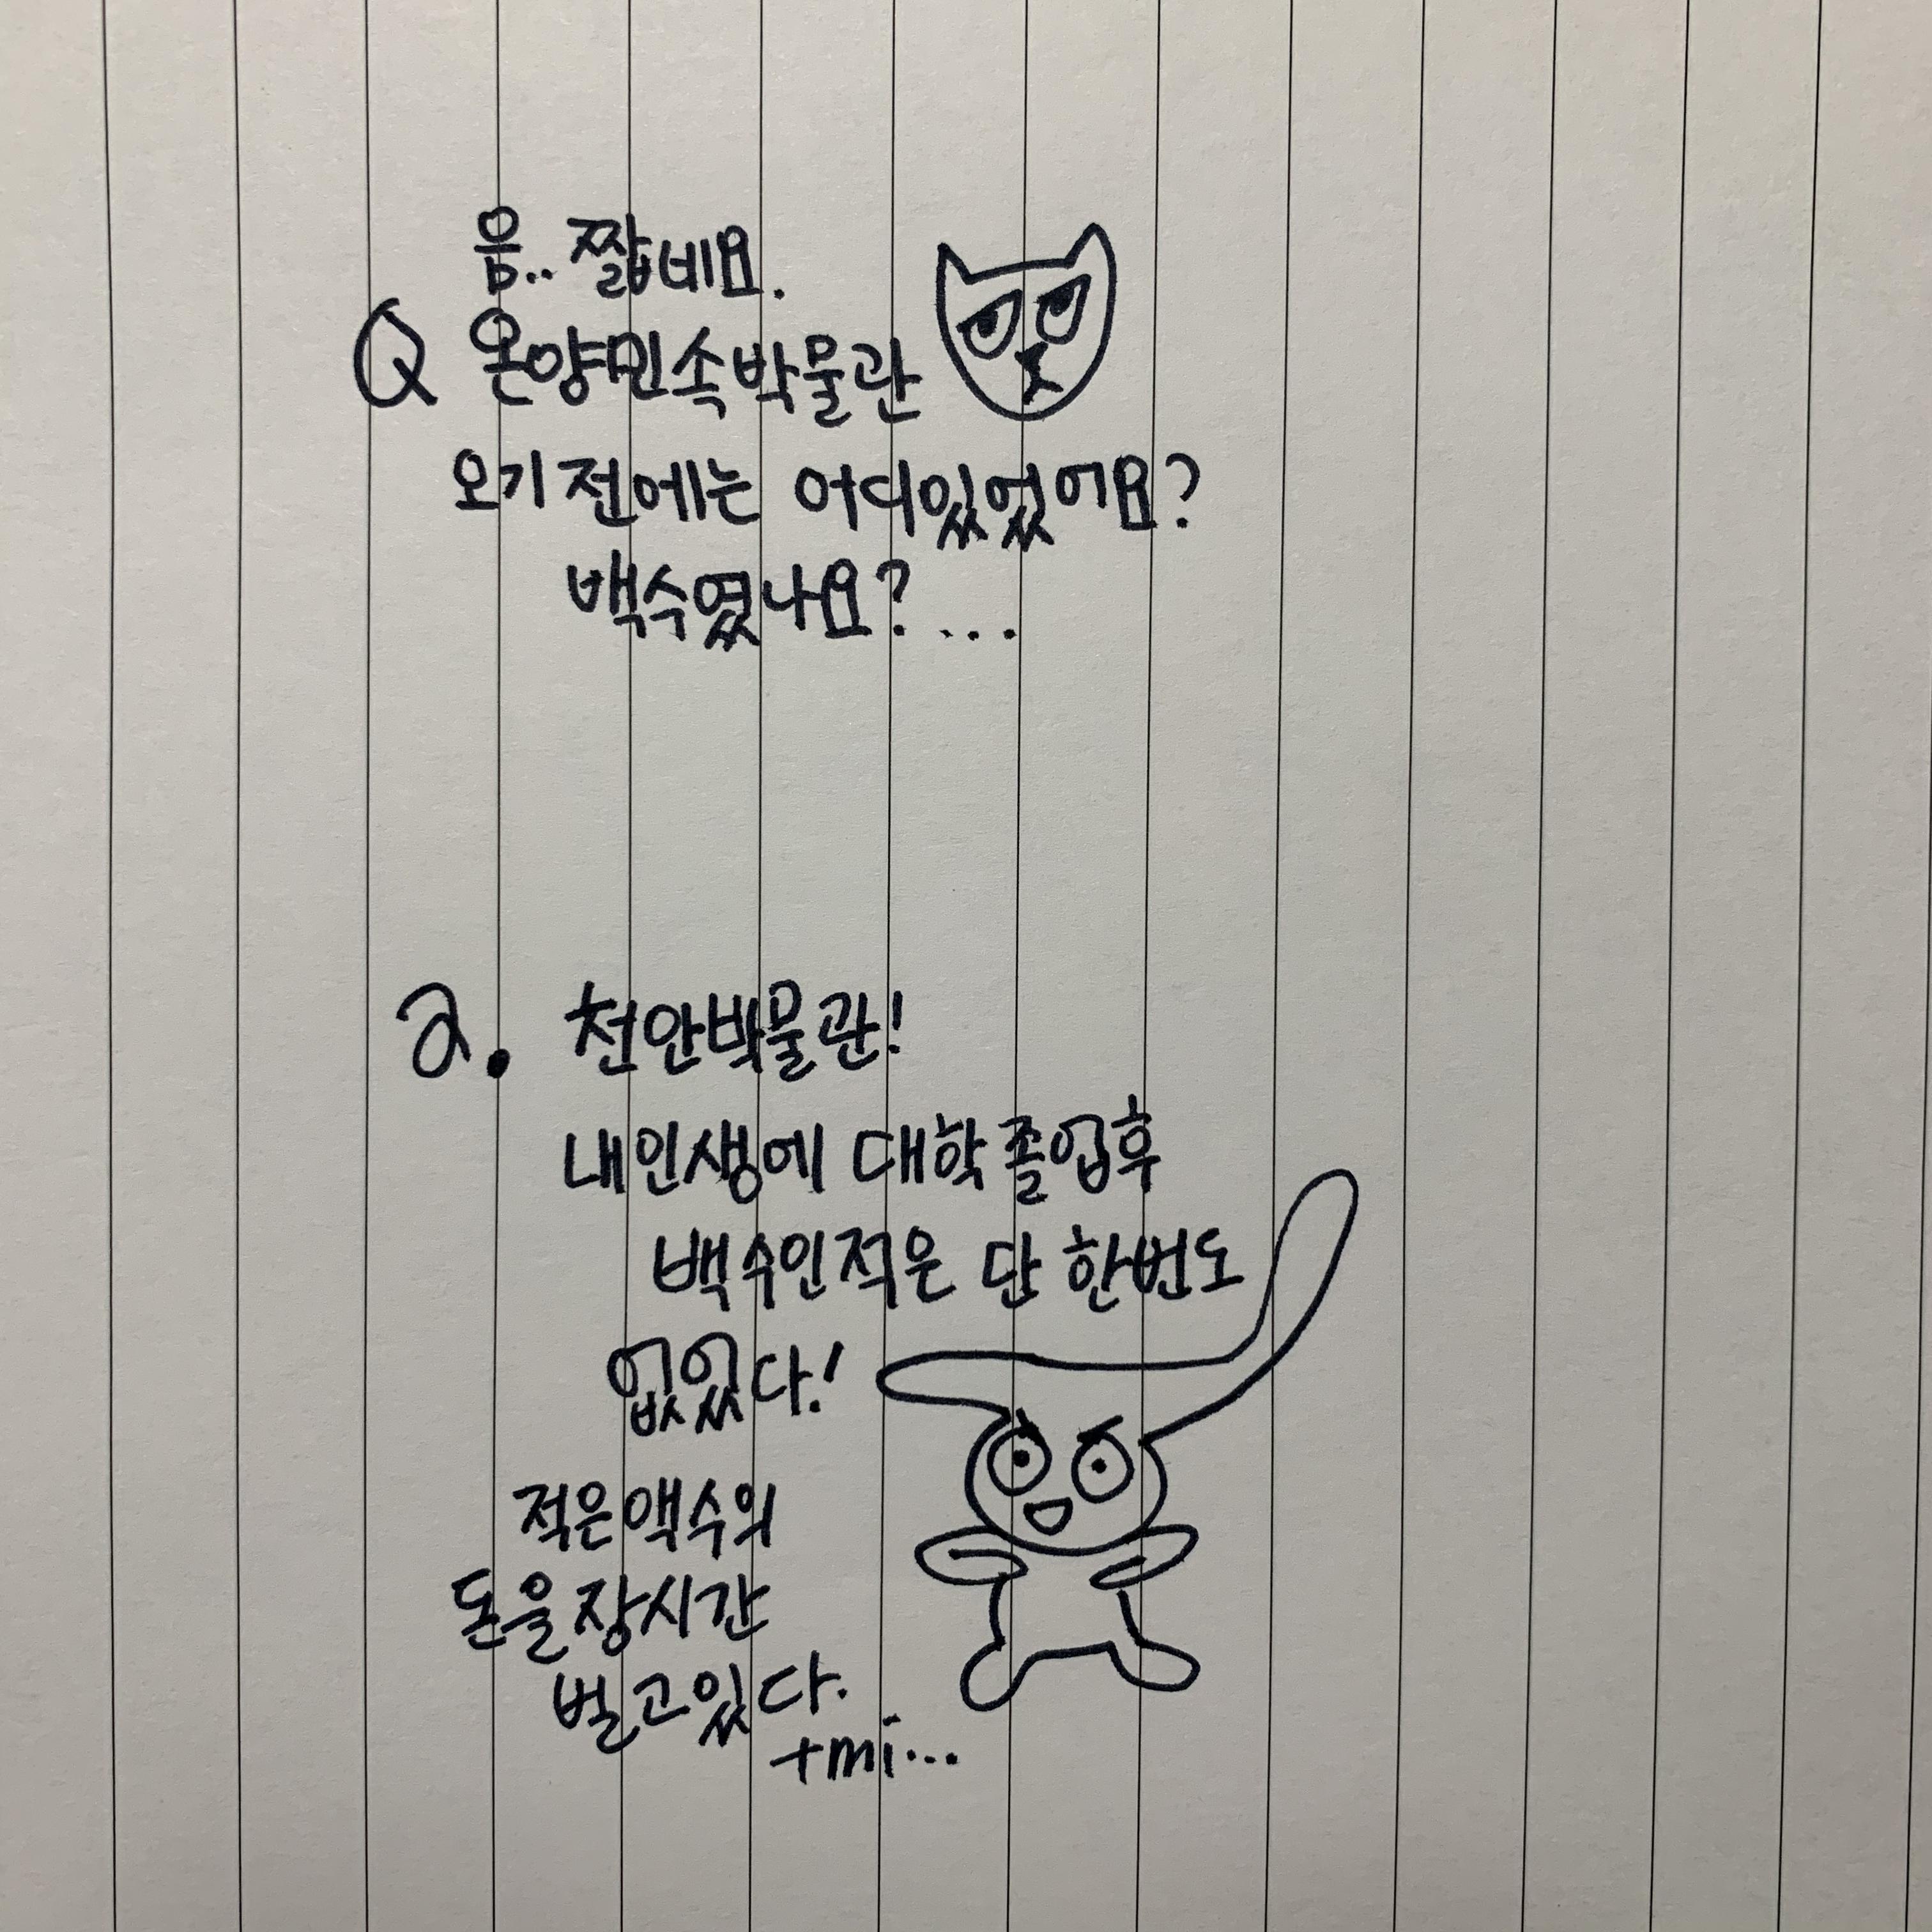 음.. 짧네요.
Q 온양민속박물관
오기 전에는 어디있었어요?
백수였나요? ...
a. 천안박물관!
내인생에 대학 졸업후
백수인적은 단 한번도
없었다!
적은액수의
돈을 장시간
벌고있다.
+mi...